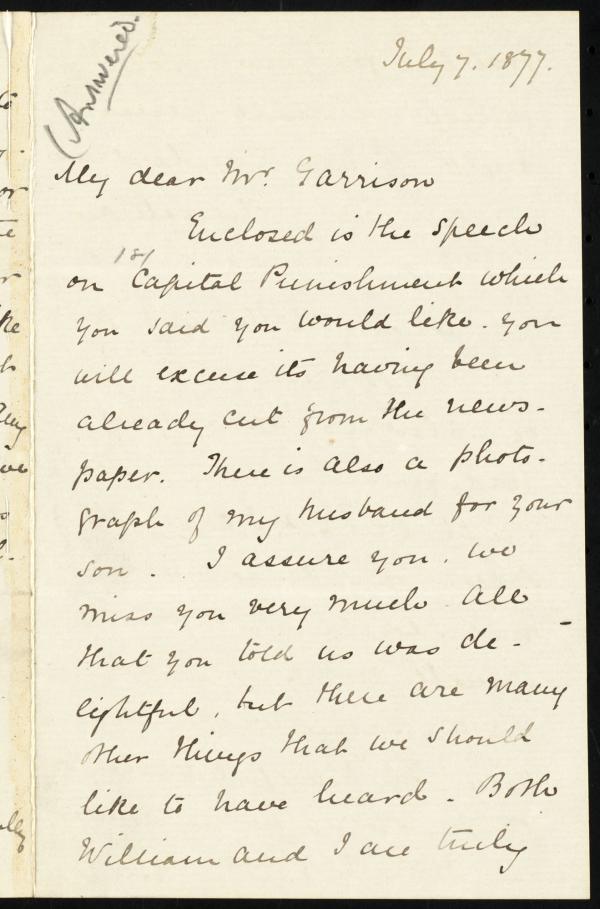 (Answered.
July 7. 1877.
My dear Mr. Garrison
Enclosed is the speech
on Capital Punishment which
you said you would like. you
will excuse its having been
already cut from the news-
paper. There is also a photo-
graph of my husband for your
son. I assure you. we
miss you very much. All
that you told us was de-
lightful, but there are many
other things that we should
like to have heard. Both
William and I are truly